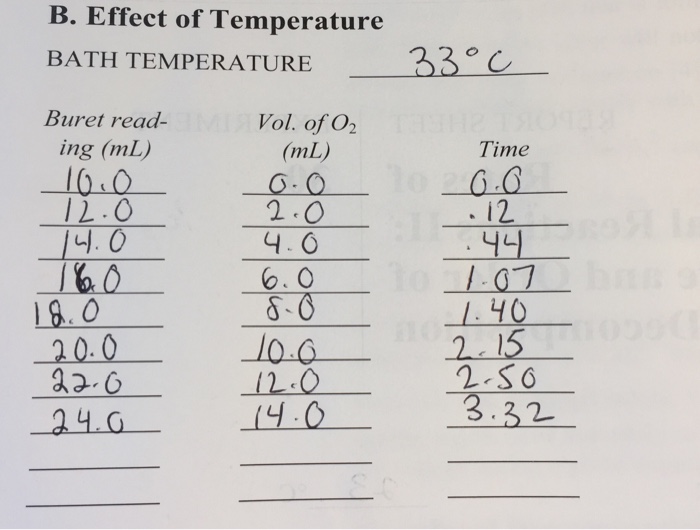 B. Effect of Temperature
BATH TEMPERATURE 33°C
Buret read- Vol. of O₂
ing (mL) (mL) Time
10.0 0.0 0.0
12.0 2.0 .12
14.0 4.0 .44
16.0 6.0 1.07
18.0 8.0 1.40
20.0 10.0 2.15
22.0 12.0 2.50
24.0 14.0 3.32